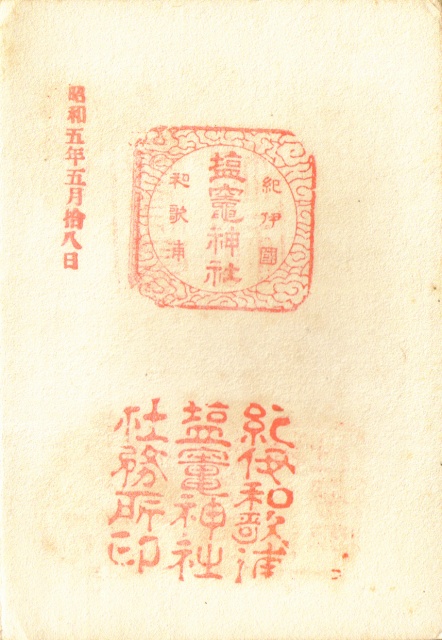 紀伊國
塩竈神社
和歌浦
昭和五年五月拾八日
紀伊和歌浦
塩竈神社
社務所印